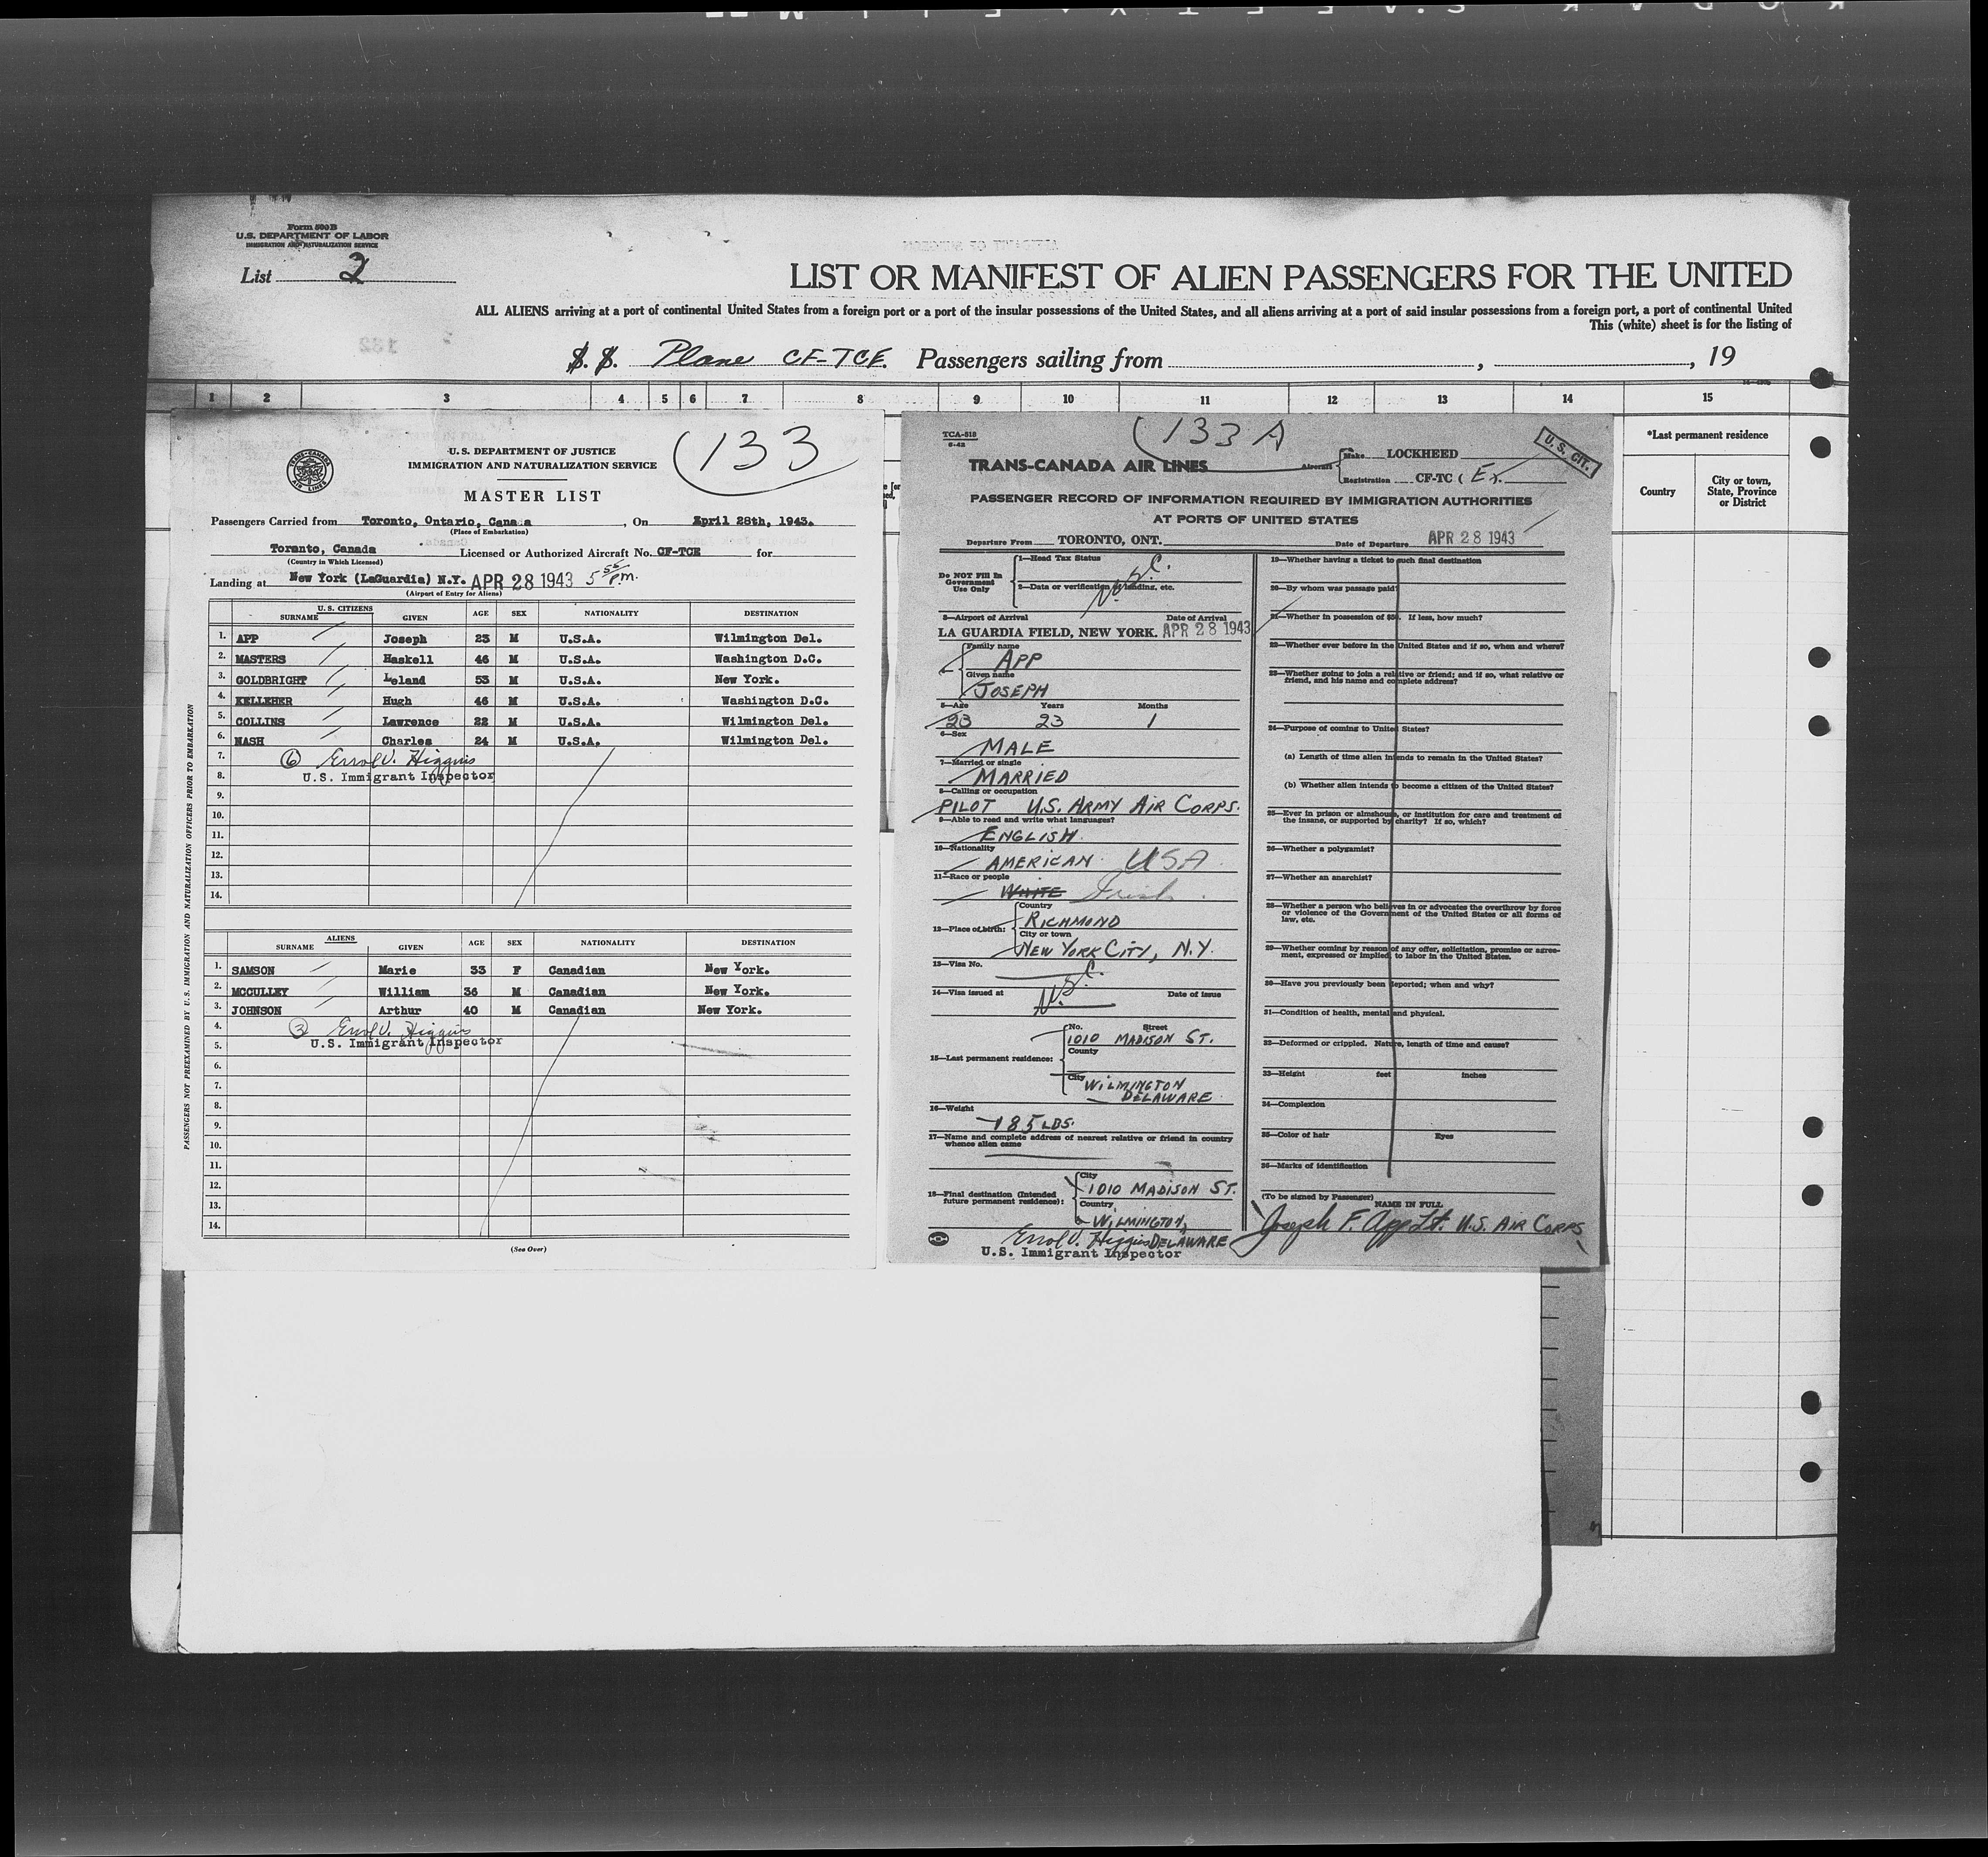 Form 500B
U.S. DEPARTMENT OF LABOR
IMMIGRATION AND NATURALIZATION SERVICE
List 2
LIST OR MANIFEST OF ALIEN PASSENGERS FOR THE UNITED
ALL ALIENS arriving at a port of continental United States from a foreign port or a port of the insular possessions of the United States, and all aliens arriving at a port of said insular possessions from a foreign port, a port of continental United
This (white) sheet is for the listing of
S. S. Plane CF-TCE. Passengers sailing from , , 19
1 2 3 4 5 6 7 8 9 10 11 12 13 14 15
*Last permanent residence
Country
City or town, State, Province or District
133
TRANS-CANADA AIR LINES
U.S. DEPARTMENT OF JUSTICE
IMMIGRATION AND NATURALIZATION SERVICE
MASTER LIST
Passengers Carried from Toronto, Ontario, Cana a , On April 28th, 1943.
(Place of Embarkation)
Toronto, Canada Licensed or Authorized Aircraft No. CF-TCE for
(Country in Which Licensed)
Landing at New York (LaGuardia) N.Y. APR 28 1943 5 55 P.m.
(Airport of Entry for Aliens)
U.S. CITIZENS
SURNAME GIVEN AGE SEX NATIONALITY DESTINATION
1. APP Joseph 23 M U.S.A. Wilmington Del.
2. MASTERS Haskell 46 M U.S.A. Washington D.C.
3. GOLDBRIGHT Leland 53 M U.S.A. New York.
4. KELLEHER Hugh 46 M U.S.A. Washington D.C.
5. COLLINS Lawrence 22 M U.S.A. Wilmington Del.
6. NASH Charles 24 M U.S.A. Wilmington Del.
7. 6 Errol V. Higgins
8. U.S. Immigrant Inspector
9.
10.
11.
12.
13.
14.
ALIENS
SURNAME GIVEN AGE SEX NATIONALITY DESTINATION
1. SAMSON Marie 33 F Canadian New York.
2. MCCULLEY William 36 M Canadian New York.
3. JOHNSON Arthur 40 M Canadian New York.
4. 3 Errol V. Higgins
5. U.S. Immigrant Inspector
6.
7.
8.
9.
10.
11.
12.
13.
14.
(See Over)
PASSENGERS NOT PREEXAMINED BY U.S. IMMIGRATION AND NATURALIZATION OFFICERS PRIOR TO EMBARKATION
TCA-518
6-42
133 A
U.S. CIT.
TRANS-CANADA AIR LINES
Aircraft Make LOCKHEED
Registration CF-TC ( E).
PASSENGER RECORD OF INFORMATION REQUIRED BY IMMIGRATION AUTHORITIES
AT PORTS OF UNITED STATES
Departure From TORONTO, ONT. Date of Departure APR 28 1943
Do NOT Fill In Government Use Only
1—Head Tax Status
U.S.C.
2—Data or verification of landing, etc.
3—Airport of Arrival Date of Arrival
LA GUARDIA FIELD, NEW YORK. APR 28 1943
Family name
APP
Given name
JOSEPH
5—Age Years Months
23 23 1
6—Sex
MALE
7—Married or single
MARRIED
8—Calling or occupation
PILOT U.S. ARMY AIR CORPS.
9—Able to read and write what languages?
ENGLISH.
10—Nationality
AMERICAN. USA.
11—Race or people
WHITE Irish.
12—Place of birth:
Country
RICHMOND
City or town
NEW YORK CITY, N.Y.
13—Visa No.
U.S.C.
14—Visa issued at Date of issue
15—Last permanent residence:
No. Street
1010 MADISON ST.
County
City WILMINGTON
DELAWARE
16—Weight
185 LBS.
17—Name and complete address of nearest relative or friend in country whence alien came
18—Final destination (Intended future permanent residence):
City
1010 MADISON ST.
Country
WILMINGTON,
DELAWARE
Errol V. Higgins
U.S. Immigrant Inspector
19—Whether having a ticket to such final destination
20—By whom was passage paid?
21—Whether in possession of $50. If less, how much?
22—Whether ever before in the United States and if so, when and where?
23—Whether going to join a relative or friend; and if so, what relative or friend, and his name and complete address?
24—Purpose of coming to United States?
(a) Length of time alien intends to remain in the United States?
(b) Whether alien intends to become a citizen of the United States?
25—Ever in prison or almshouse, or institution for care and treatment of the insane, or supported by charity? If so, which?
26—Whether a polygamist?
27—Whether an anarchist?
28—Whether a person who believes in or advocates the overthrow by force or violence of the Government of the United States or all forms of law, etc.
29—Whether coming by reason of any offer, solicitation, promise or agreement, expressed or implied, to labor in the United States.
30—Have you previously been deported; when and why?
31—Condition of health, mental and physical.
32—Deformed or crippled. Nature, length of time and cause?
33—Height feet inches
34—Complexion
35—Color of hair Eyes
36—Marks of identification
(To be signed by Passenger) NAME IN FULL
Joseph F. App Lt. U.S. AIR CORPS